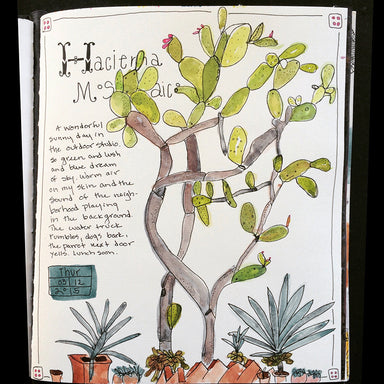 Hacienda
Mosaico
A wonderful
sunny day in
the outdoor studio.
so green and lush
and blue dream
of sky. warm air
on my skin and the
sound of the neigh-
borhood playing
in the background
The water truck
rumbles, dogs bark,
the parrot next door
yells. Lunch soon.
Thur
03/12
2015